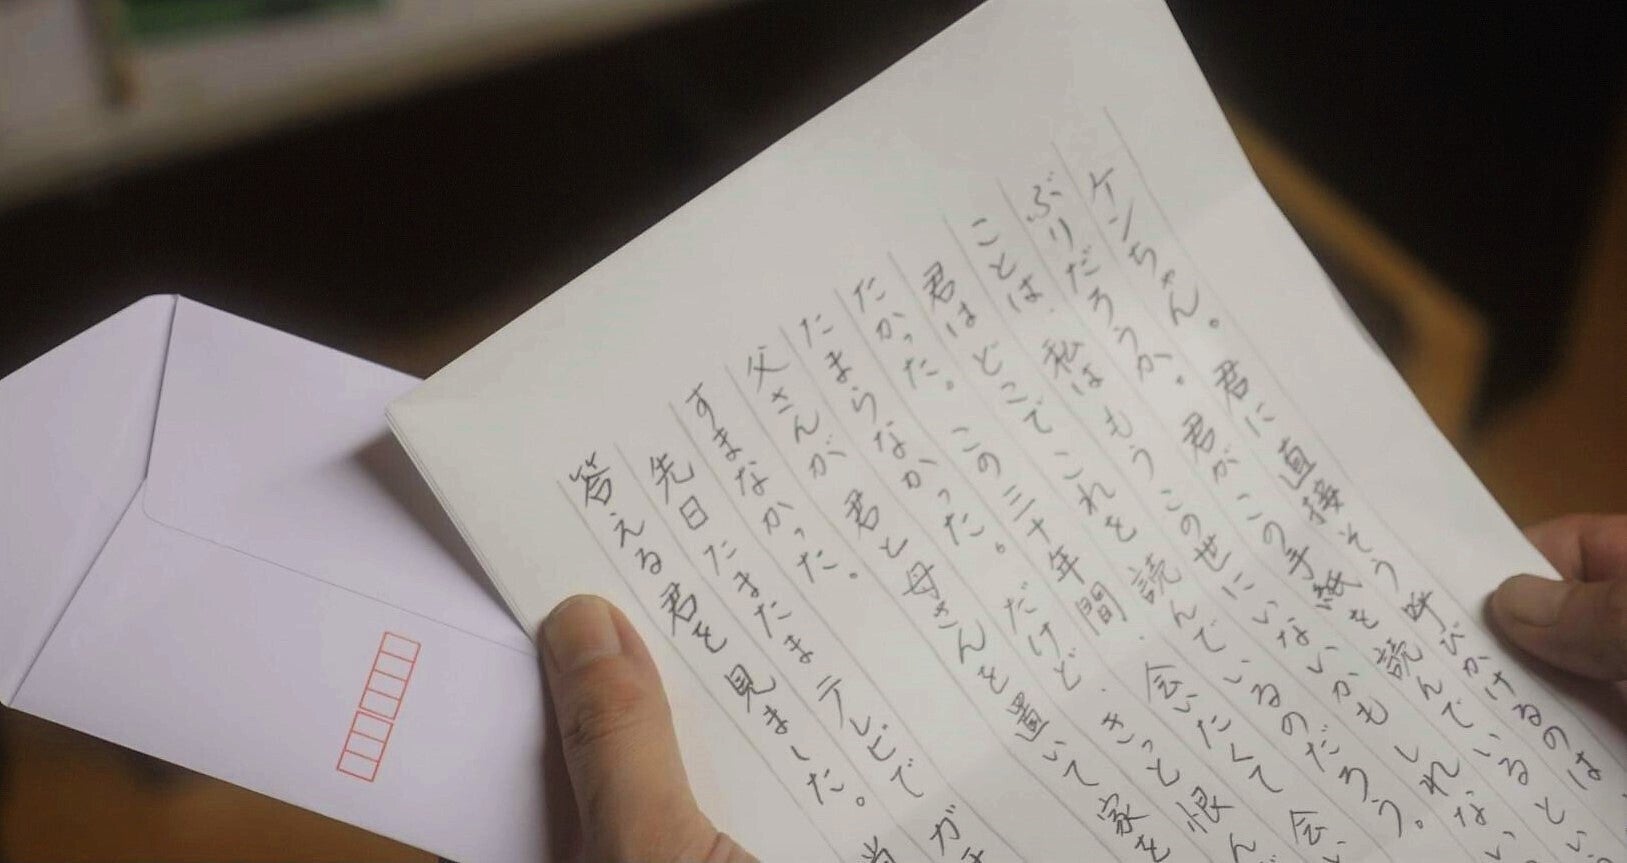 ケンちゃん。君に直接そう呼びかけるのは
ぶりだろうか。君がこの手紙を読んでいるとい
ことは、私はもうこの世にいないかもしれない
君はどこでこれを読んでいるのだろう。
たかった。この三十年間、会いたくて会い
たまらなかった。だけど、きっと恨んで
父さんが君と母さんを置いて家を
すまなかった。
先日たまたまテレビでガ
答える君を見ました。当